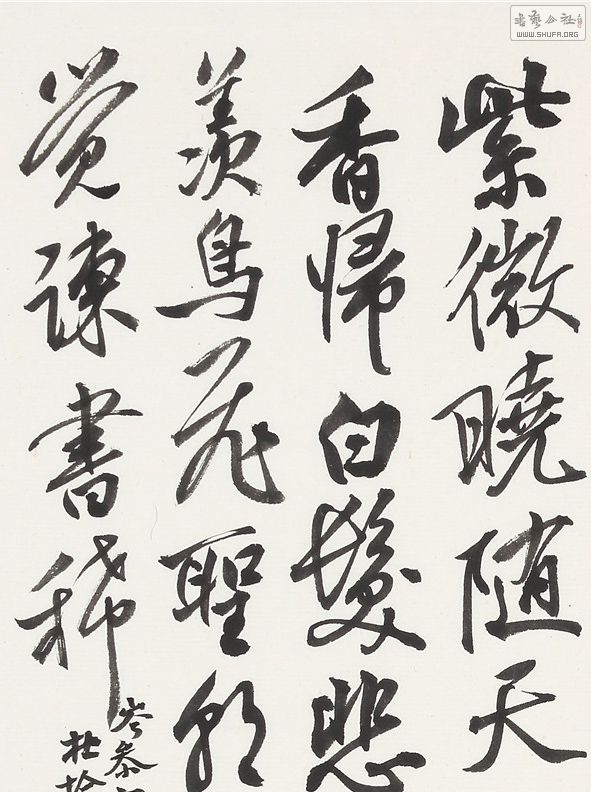 書藝公社
WWW.SHUFA.ORG
紫微曉随天
香帰白髮悲
羡鳥飛聖朝
觉諫書稀
岑参
杜拾